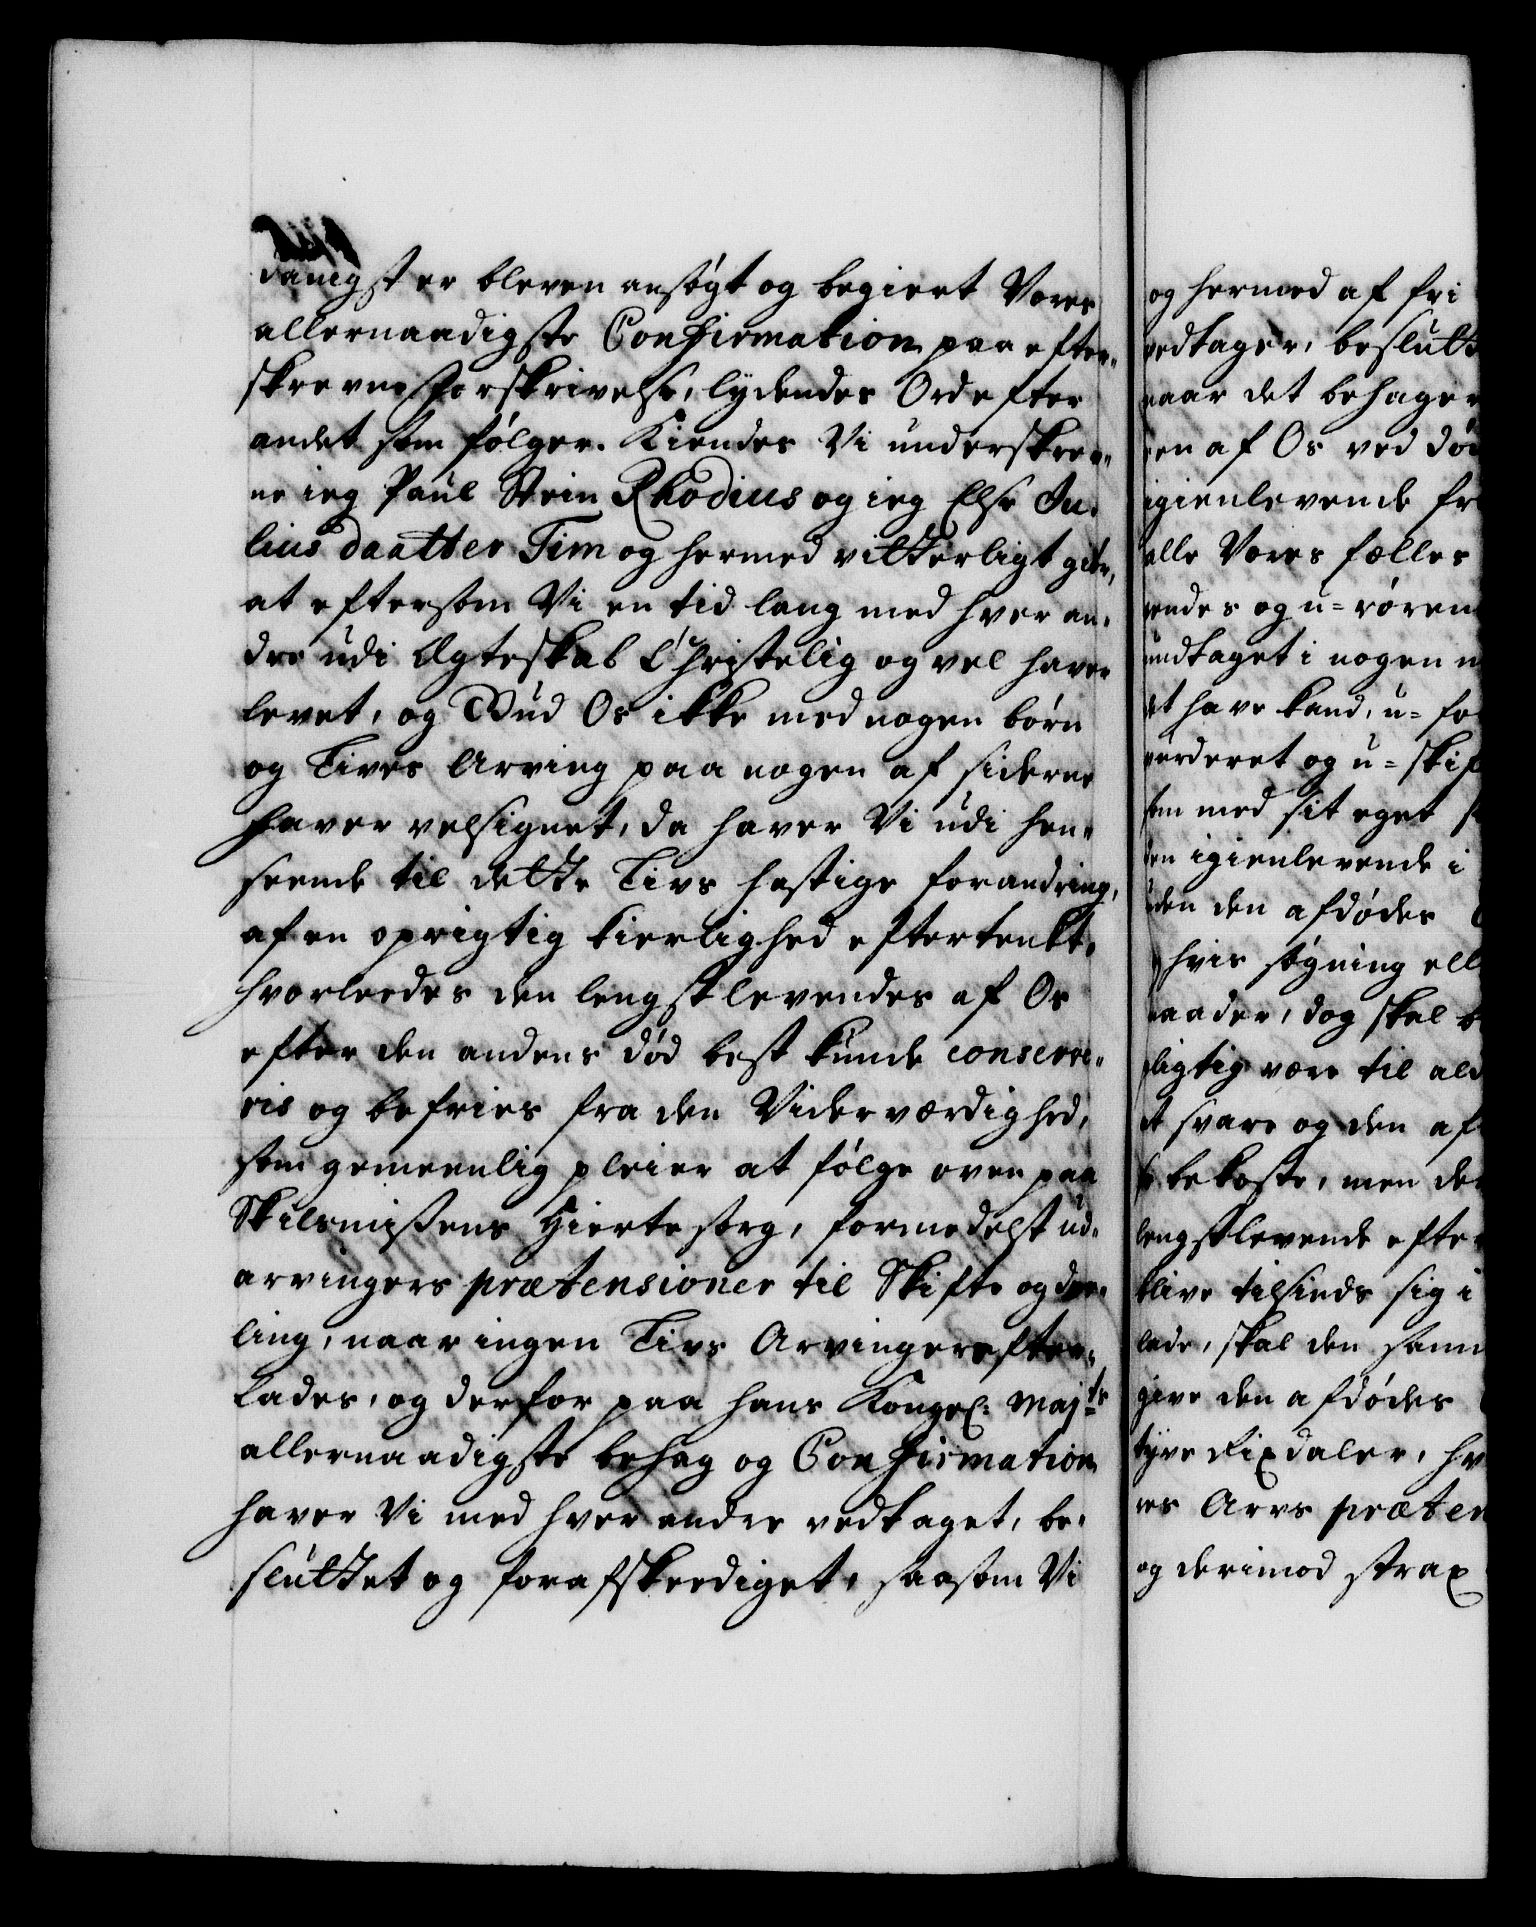 danigst er bleven ansøgt og begiert Vores
allernaadigste Confirmation paa efter-
skrevne forskrivelse, lydendes Ord efter
andet som følger. Kiendes Vi underskrev-
ne ieg Paul Stein Rhodius og ieg Else Ju-
lius daatter Tim og hermed vitterligt giør,
at eftersom Vi en tid lang med hver an-
dre udi Ægteskab Christelig og vel haver
levet, og Gud Os ikke med nogen børn
og Livs Arving paa nogen af siderne
haver velsignet, da haver Vi udi hen-
seende til dette Livs hastige forandring,
af en oprigtig kierlighed eftertenkt,
hvorleedes den lengstlevendes af Os
efter den andens død best kunde conserve-
ris og befries fra den Viderværdighed,
som gemeenlig pleier at følge oven paa
Skilsmissens Hierte sorg, formedelst ud-
arvingers prætensioner til Skifte og dee-
ling, naar ingen Livs Arvinger efter-
lades, og derfor paa Hans Kongel: Majts
allernaadigste behag og Confirmation
haver Vi med hver andre vedtaget, be-
sluttet og forafskeediget, saasom Vi
og hermed af fri
vedtager, beslutte
naar det behager
een af Os ved død
igienlevende fr
alle Vores fælles
rendes og u-røren
undtaget i nogen m
et have kand, u-for
vurderet og u-skif
som med sit eget
den igienlevende i
uden den afdødes
hvis søgning ell
maader, dog skal
pligtig være til ald
at svare og den af
bekoste, men de
lengstlevende efter
blive tilsinds sig i
lade, skal den samm
give den afdødes
tyve Rixdaler, hv
res Arvs præten
og derimod strax